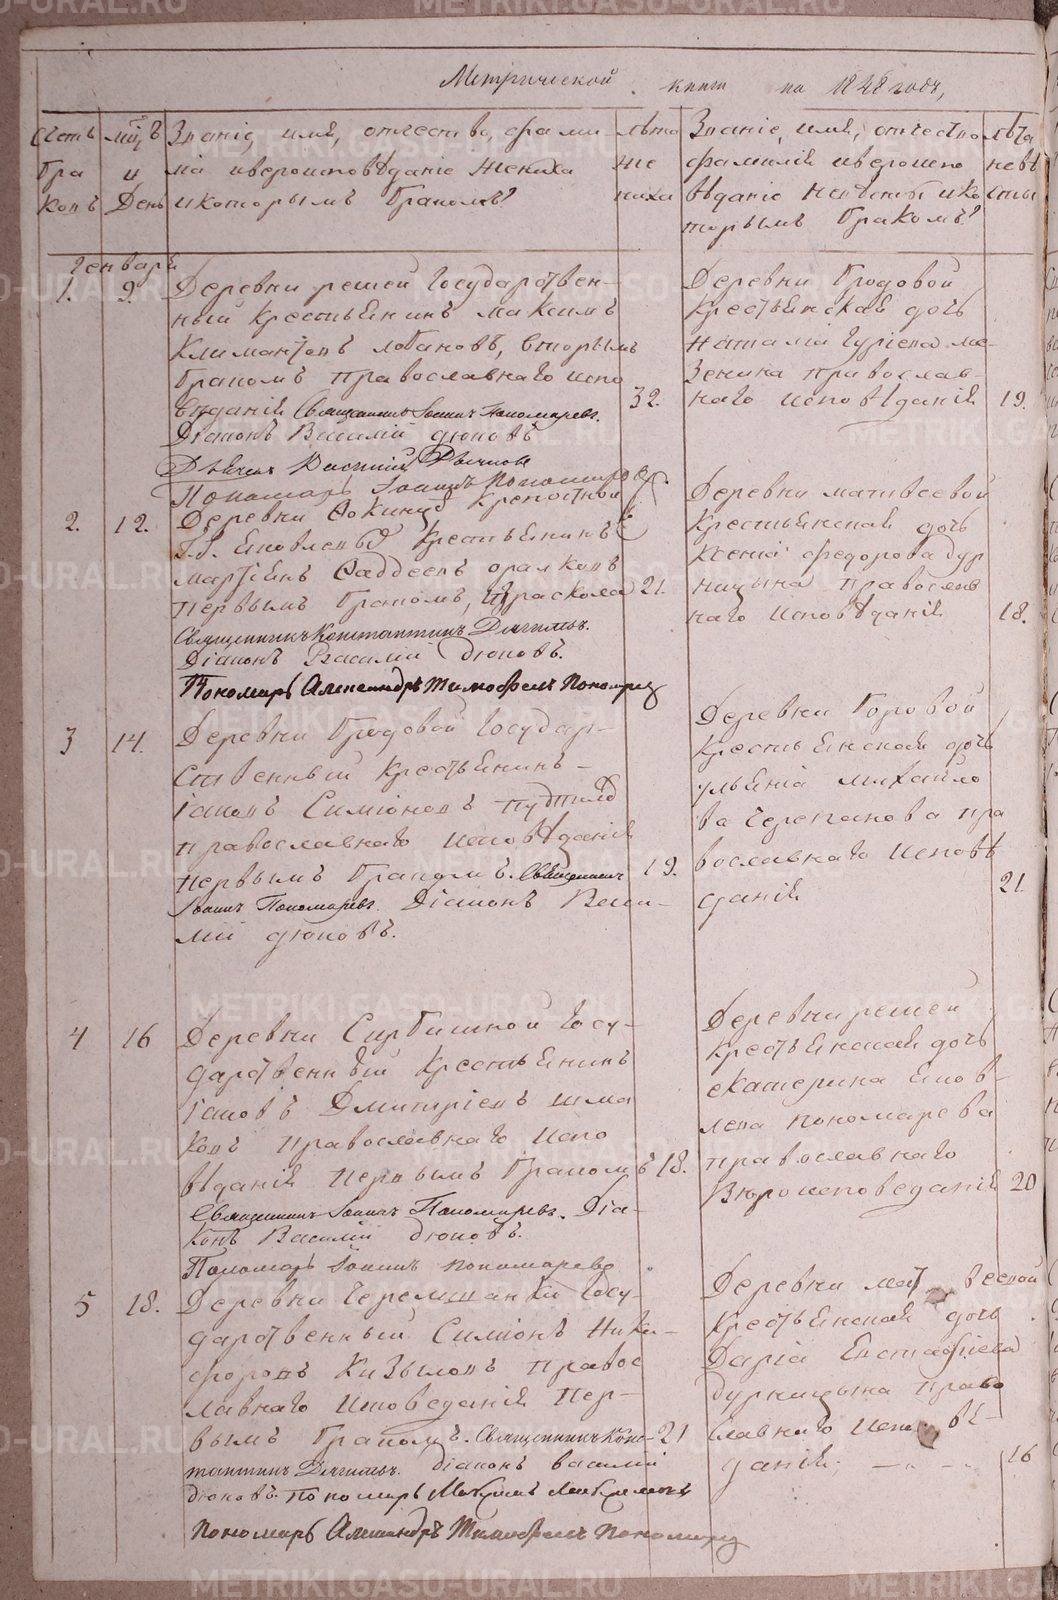 Метрической книги на 1848 годъ,
Счетъ
бра
ковъ
мцъ
и
День
Званіе, имя, отчество, фами-
лія и вероисповѣданіе Жениха
и которымъ бракомъ?
лѣта
же
ниха
Званіе, имя, отчество
фамилія и вероиспо
вѣданіе Невѣсты и ко
торымъ бракомъ?
лѣта
невѣ
сты
Генваря
1. 9.
Деревни решей Государствен-
ный крестьянинъ максимъ
Климантовъ лобановъ, вторымъ
бракомъ православнаго испо
вѣданія Священникъ Іоаннъ Пономаревъ.
Діаконъ Василій дюковъ
Пономарь Іоаннъ Пономаревъ
32.
Деревни бродовой
Крестьянская дочь
Наталія Гуріева ме-
Зенина православ-
наго исповѣданія
19.
2. 12.
Деревни Фокиной крепостной
Г.Г. Яковлевыхъ Крестьянинъ
первымъ бракомъ, изъ раскола 21.
Священникъ Константинъ
Діаконъ Василій дюковъ.
Пономарь Александръ Тимофеевъ Пономаревъ
Деревни матвеевой
Крестьянская дочь
Ксенія федорова дур
ницына православ
наго исповѣданія
18.
3 14.
Деревни бродовой Государ-
ственный крестьянинъ -
Іаковъ Симіоновъ
православнаго исповѣданія
первымъ бракомъ. Священникъ
Іоаннъ Пономаревъ. Діаконъ Васи-
лій дюковъ.
19.
Деревни Боровой
Крестьянская дочь
ульянія михайло
ва Черепанова пра
вославнаго исповѣ
данія
21
4 16
Деревни Сарбишной Госу-
дарственный Крестьянинъ
Іаковъ Дмитріевъ шма
ковъ православнаго испо
вѣданія первымъ бракомъ 18.
Священникъ Іоаннъ Пономаревъ. Діа-
конъ Василій дюковъ.
Пономарь Іоаннъ пономаревъ
Деревни решей
крестьянская дочь
екатерина яков-
лева пономарева
православнаго
Вѣроисповеданія
20
5 18.
Деревни Черемшанки Госу-
дарственный Симіонъ Ники-
форовъ Кизыловъ правос
лавнаго исповеданія пер-
вымъ бракомъ. Священникъ Конс- 21
тантинъ діаконъ василій
дюковъ. Пономарь
Пономарь Александръ Тимофеевъ Пономаревъ
Деревни мат веевой
Крестьянская дочь
Дарія Евстафіева
дурницына право
славнаго испо вѣ-
данія,
16